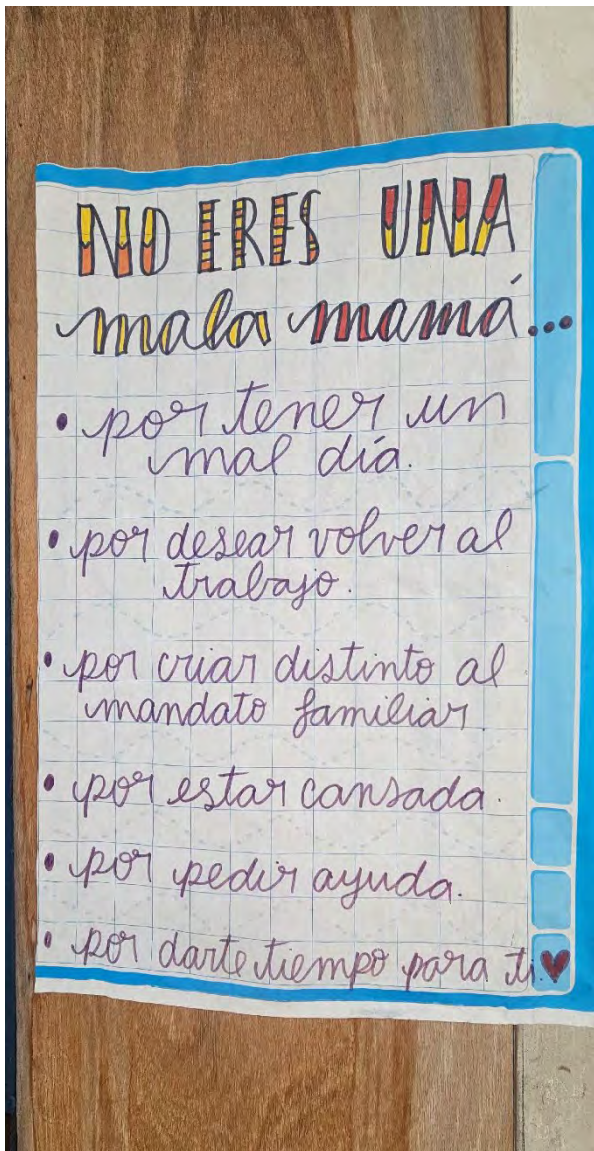 NO ERES UNA
mala mamá...
• por tener un
mal día.
• por desear volver al
trabajo.
• por criar distinto al
mandato familiar.
• por estar cansada.
• por pedir ayuda.
• por darte tiempo para ti.♥